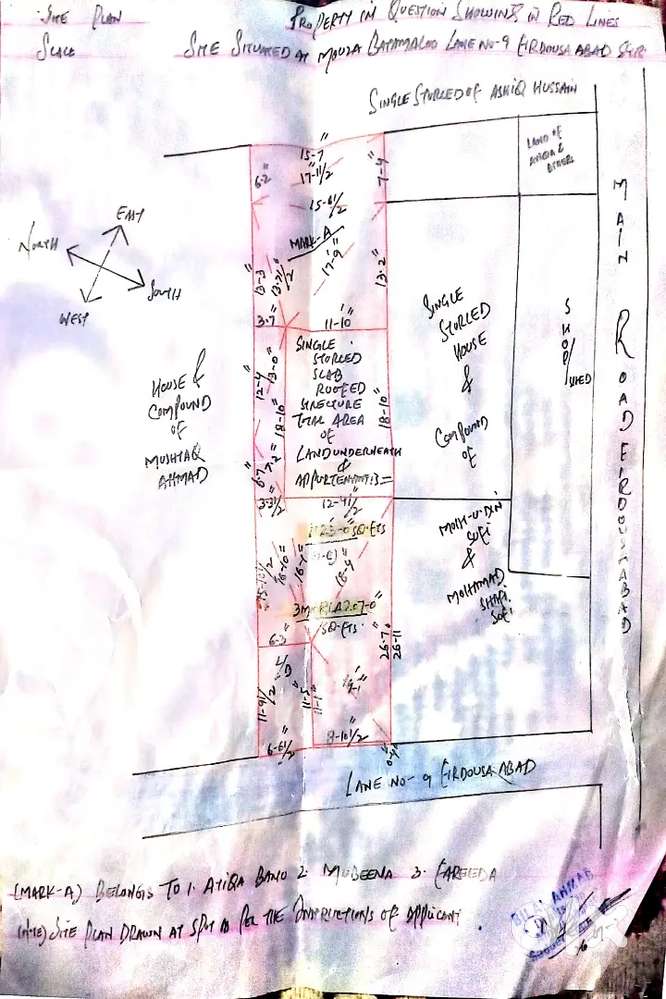 SITE PLAN
PROPERTY IN QUESTION SHOWING IN RED LINES
SCALE
SITE SITUATED AT MOUZA BATAMALOO LANE NO-9 FIRDOUSABAD SGR.
SINGLE STORLED OF ASHIQ HUSSAIN
LAND OF
OTHERS
MAIN ROAD FIRDOUSABAD
15-7"
6-2"
17-11/2"
7-4"
15-61/2"
MARK-A
17-9"
13-3"
13-71/2"
13-2"
EAST
NORTH
SOUTH
WEST
3-7"
11-10"
SINGLE
STORLED
SLAB
ROOFED
STRUCTURE
TOTAL AREA
OF
LAND UNDERNEATH
&
APPURTENANT IS=
12-4"
13-0"
18-10"
18-10"
6-7"
7-2"
3-31/2"
12-41/2"
HOUSE &
COMPOUND
OF
MUSHTAQ
AHMAD
SINGLE
STORLED
HOUSE
&
COMPOUND
OF
SHOP/SHED
MOHI-U-DIN
SOFI
&
MOHAMAD
SHAFI
SOFI
SQ.FTS
15-101/2"
16-10"
16-1"
16-4"
3MARLA 207-0
SQ.FTS.
6-3"
26-7"
26-11"
11-91/2"
11-5"
11-1"
19-1"
6-61/2"
8-101/2"
0-4"
LANE NO-9 FIRDOUSABAD
(MARK-A) BELONGS TO 1. ATIQA BANO 2. MUBEENA 3. FAREEDA
(NOTE) SITE PLAN DRAWN AT SPOT AS PER THE INSTRUCTIONS OF APPLICANT.
AHMAD